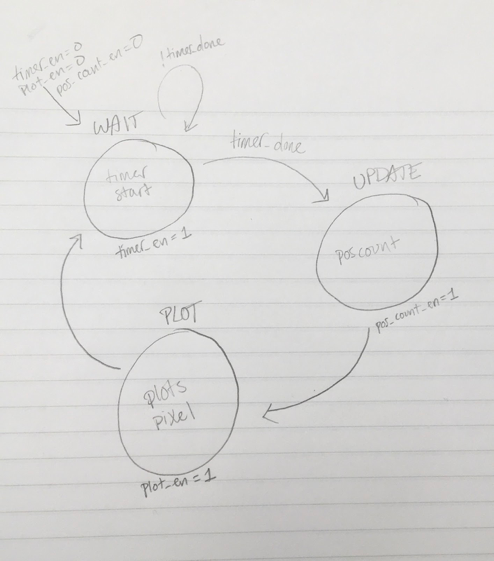 timer_en=0
plot_en=0
pos_count_en=0
!timer_done
WAIT
timer
start
timer_en=1
timer_done
UPDATE
poscount
pos_count_en=1
PLOT
plots
pixel
plot_en=1